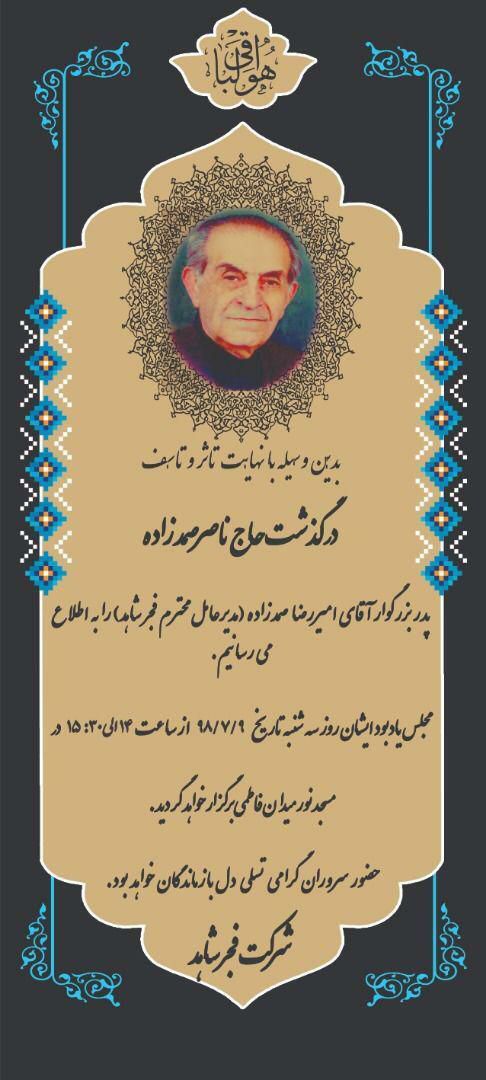 هو الباقی
بدین وسیله با نهایت تاثر و تاسف
درگذشت حاج ناصر صمدزاده
پدر بزرگوار آقای امیررضا صمدزاده (مدیرعامل محترم فجر شاهد) را به اطلاع
می رسانیم.
مجلس یادبود ایشان روز سه شنبه تاریخ ۹۸/۷/۹ از ساعت ۱۴ الی ۱۵:۳۰ در
مسجد نور میدان فاطمی برگزار خواهد گردید.
حضور سروران گرامی تسلی دل بازماندگان خواهد بود.
شرکت فجر شاهد